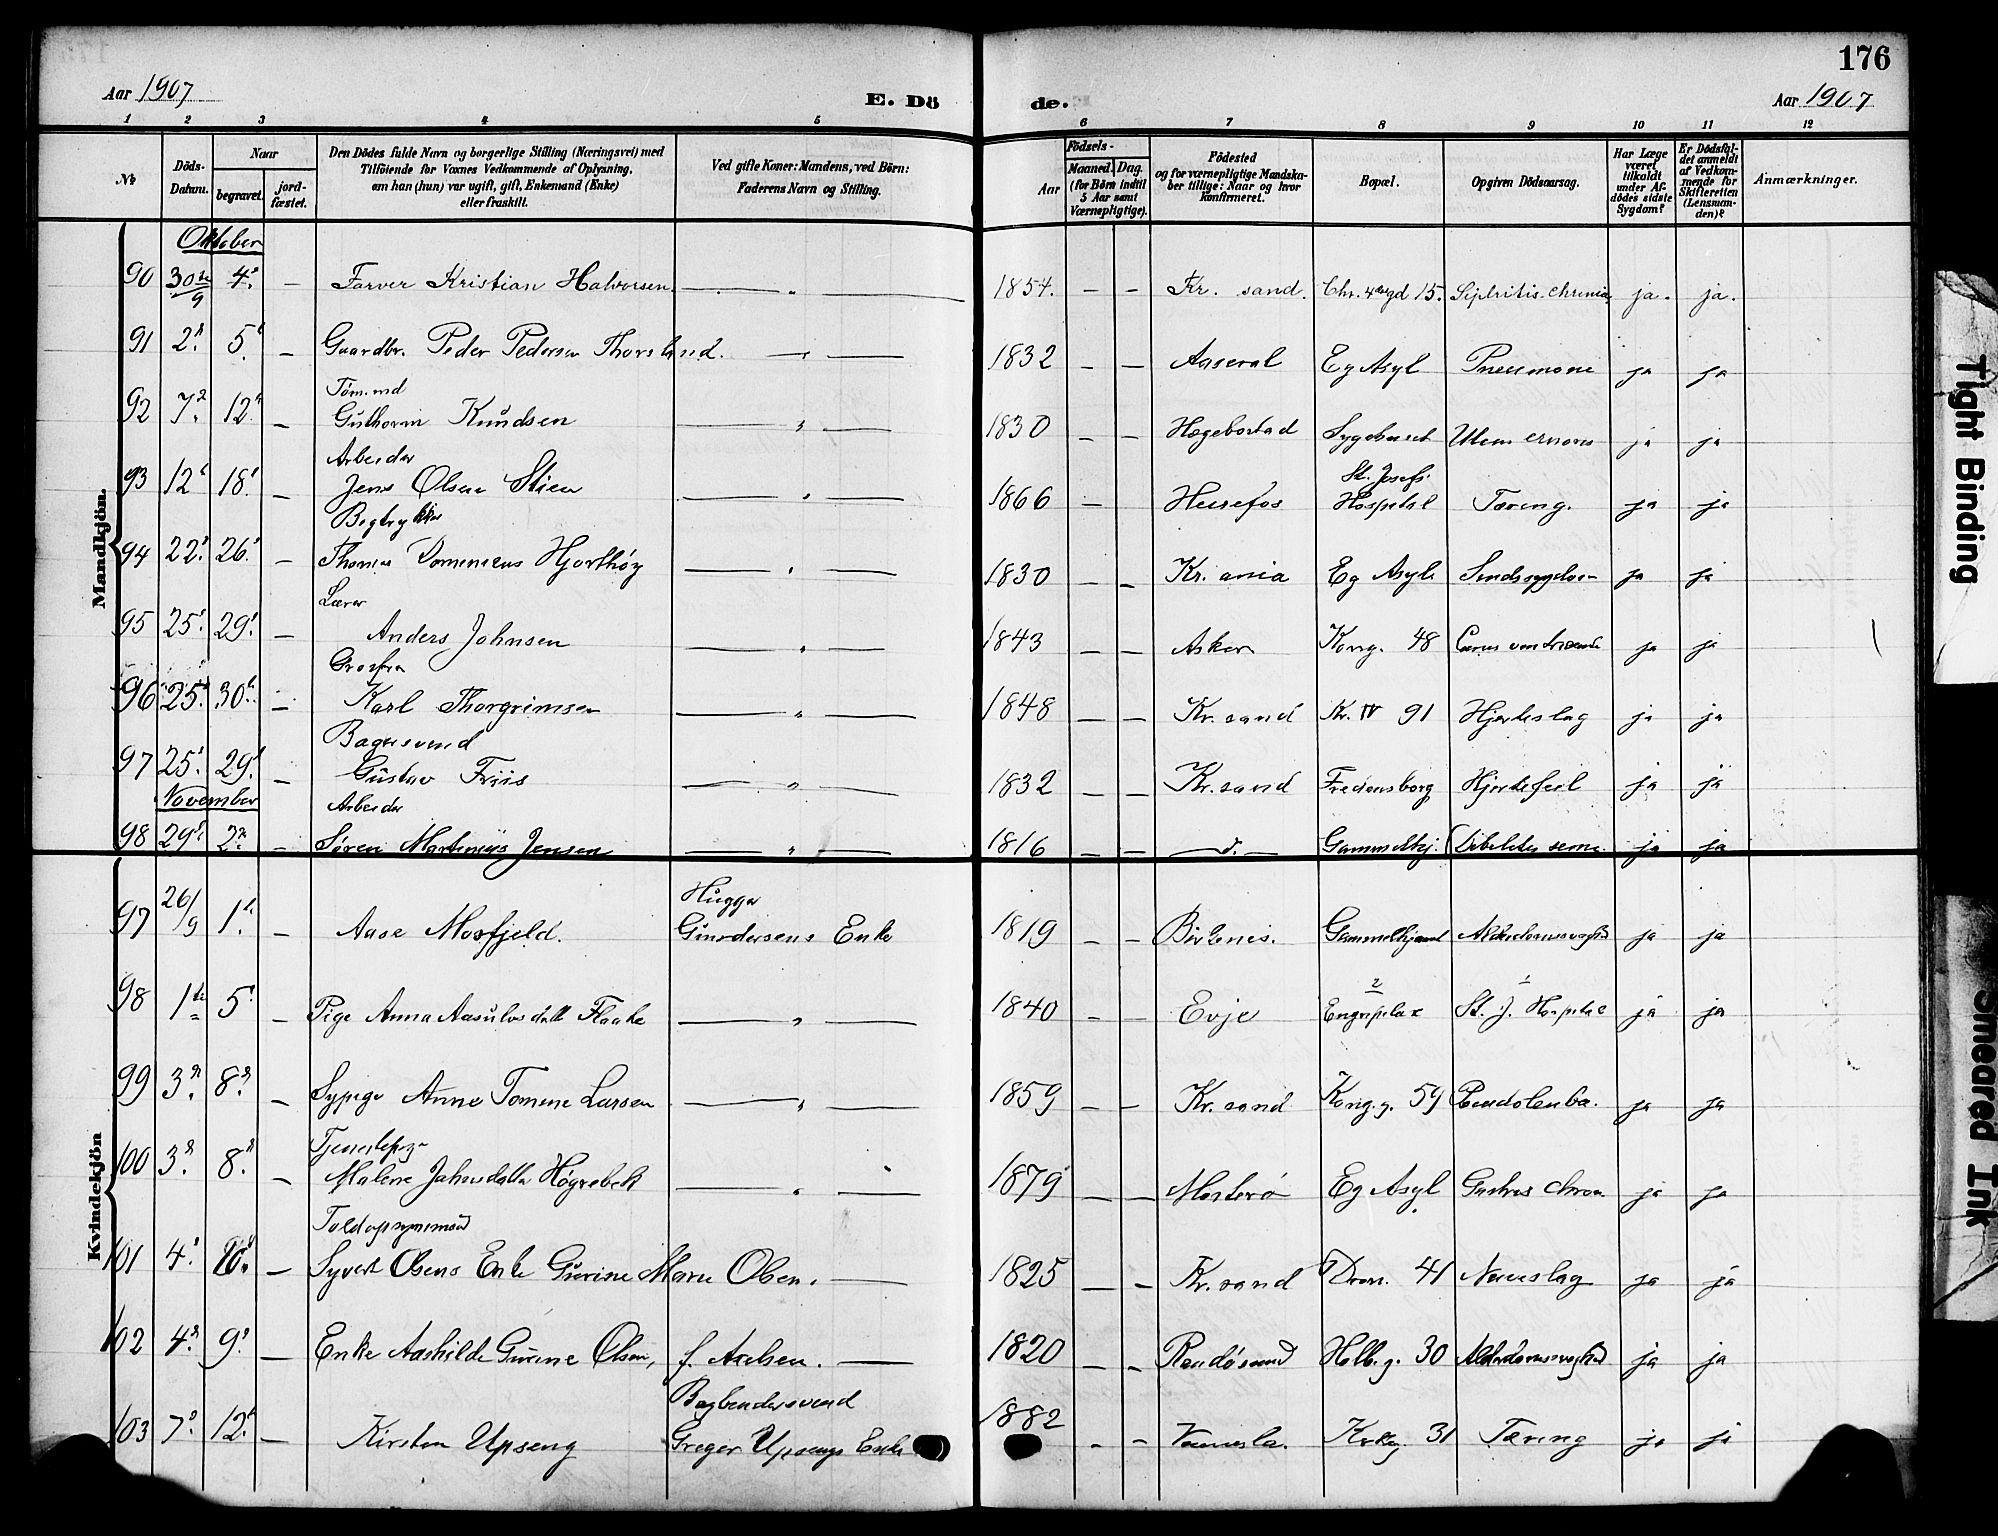 176
Aar 1907 E. Dö de. Aar 1907
1 2 3 4 5 6 7 8 9 10 11 12
№ Döds-Datum. Naar begravet. jord-fæstet. Den Dödes fulde Navn og borgerlige Stilling (Næringsvei) med Tilföiende for Voxnes Vedkommende af Oplysning, om han (hun) var ugift, gift, Enkemand (Enke) eller fraskilt. Ved gifte Koner: Mandens, ved Börn: Faderens Navn og Stilling. Födsels- Aar Maaned. Dag. (for Börn indtil 5 Aar samt Værnepligtige). Födested og for værnepligtige Mandskaber tillige: Naar og hvor konfirmeret. Bopæl. Opgiven Dödsaarsag. Har Læge været tilkaldt under Afdödes sidste Sygdom? Er Dödsfaldet anmeldt af Vedkommende for Skifteretten (Lensmanden)? Anmærkninger.
Mandkjön.
Oktober
90 30te/9 4. — Farver Kristian Halvorsen — „ — 1854. - - Kr. sand. Chr. 4de gd 15. ja. ja.
91 2. 5. — Gaardbr. Peder Pedersen Thorsland. — „ — 1832 - - Aaseral Eg Asyl Pneumonie ja ja
Töm.md
92 7. 12. — Guthorm Knudsen — „ — 1830 - - Hægebostad Sygehuset ja ja
Arbeider St. Josefs
93 12. 18. — Jens Olsen Stien — „ — 1866 - Heirefos Hospital Tæring. ja ja
Bogtrykker
94 22. 26. — Thomas Dominicus Hjorthöy — „ — 1830 - - Kr. ania Eg Asyl Sindssygdom ja ja
Lærer
95 25. 29. — Anders Johnsen — „ — 1843 - - Asker Kong. 48 ja ja
96 25. 30. — Karl Thorgrimsen — „ — 1848 - - Kr. sand Kr. IV 91 Hjerteslag ja ja
Bagersvend
97 25. 29. — Gustav Friis — „ — 1832 - - Kr. sand Fredensborg Hjertefeil ja ja
November
Arbeider
98 29. 2. — Sören Martinius Jensen — „ — 1816 - - — d. — Gammelhj. ja ja
Kvindekjön
Hugger
97 26/9 1. — Aase Mosfjeld. Gundersens Enke 1819 - - Birkenes. Gammelhjem Alderdomssvaghed ja ja
98 1. 5. — Pige Anna Aasulvsdatt Flaate — „ — 1840 - - Evje St. J. Hospital ja ja
99 3. 8. — Sypige Anne Tomine Larsen — „ — 1859 - - Kr. sand Kong. g. 59 ja ja
Tjenestepige
100 3. 8. — Malene Jahnsdatter Högrebek — „ — 1879 - - Mosterö Eg Asyl ja ja
Toldopsynsmand
101 4. 10. — Syvert Olsens Enke Gurine Marie Olsen. — 1825 - - Kr. sand Dron. 41 ja ja
102 4. 9. — Enke Aashilde Gurine Olsen, f. Axelsen. — 1820 - - Randösund Holb. g. 30 Alderdomssvaghed ja ja
Bogbindersvend
103 7. 12. — Kirsten Upseng Greger Upsengs Enke 1882 - - Vennesla. Kirkeg. 31 Tæring ja ja
Tight Binding
Smeared Ink